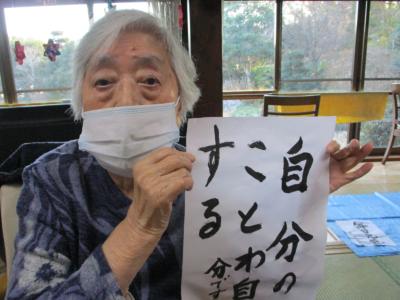 自分の
ことわ自
分で
する